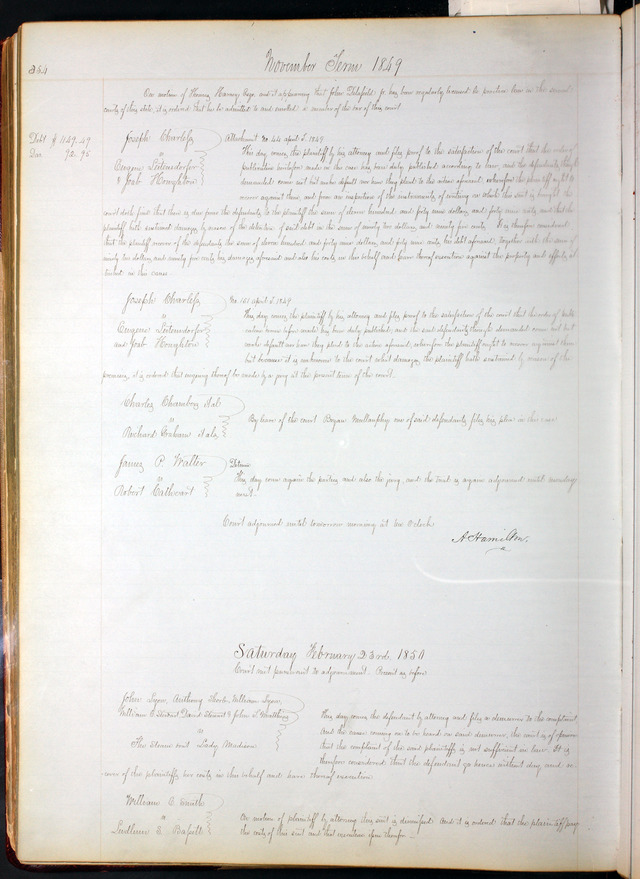 354
November Term 1849
On motion of and it appearing that John regularly licensed to practice law in the several
courts of this state, it is ordered that he be admitted to and enrolled a member of the bar of this court
Debt $ 1149.49
Dam 92.95
Joseph Charless
vs
Eugene Leitensdorfer
& Joab Houghton
Attachment No 44 April T. 1849
This day comes the plaintiff by his attorney and files proof to the satisfaction of the court that the order of
publication heretofore made in this case has been duly published according to law, and the defendants though
demanded come not but make default nor have they plead to the action aforesaid, wherefore the plaintiff ought to
recover against them, and from an inspection of the instruments of writing on which this suit is brought the
court doth find that there is due from the defendants to the plaintiff the sum of eleven hundred and forty nine dollars and forty nine cents and that the
plaintiff hath sustained damages by reason of the detention of said debt in the sum of ninety two dollars and ninety five cents. It is therefore considered
that the plaintiff recover of the defendants the sum of eleven hundred and forty nine dollars and forty nine cents his debt aforesaid, together with the sum of
ninety two dollars and ninety five cents his damages aforesaid and also his costs in this behalf and have thereof execution against the property and effects at-
tached in this cause
Joseph Charless
vs
Eugene Leitensdorfer
and Joab Houghton
No 161 April T. 1849
This day comes the plaintiff by his attorney and files proof to the satisfaction of the court that the order of publi-
cation herein before made has been duly published, and the said defendants though demanded come not but
make default nor have they plead to the action aforesaid, wherefore the plaintiff ought to recover against them
but because it is unknown to the court what damages the plaintiff hath sustained by reason of the
premises, it is ordered that enquiry thereof be made by a jury at the present term of this court.
Charles Chambers et al
vs
Richard Graham et als
By leave of the court Bryan Mullanphy one of said defendants files his plea in this case
James P. Walter
vs
Robert Cathcart
Detinue
This day come again the parties and also the jury, and the trial is again adjourned until monday
next.
Court adjourned until tomorrow morning at ten o'clock
A Hamilton.
Saturday February 23rd. 1850
Court met pursuant to adjournment. Present as before
John Lyon, Anthony William Lyon,
William C. Stewart David Stewart & John S.
vs
The Steam boat Lady Madison
This day comes the defendant by attorney and files a demurrer to the complaint,
And the cause coming on to be heard on said demurrer, the court is of opinion
that the complaint of the said plaintiffs is not sufficient in law. It is
therefore considered that the defendant go hence without day and re-
cover of the plaintiffs her costs in this behalf and have thereof execution
William B.
vs
Ludlum E Basett
On motion of plaintiff by attorney this suit is dismissed And it is ordered that the plaintiff pay
the costs of this suit and that execution issue therefor